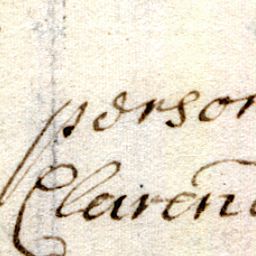 person
Clareñ